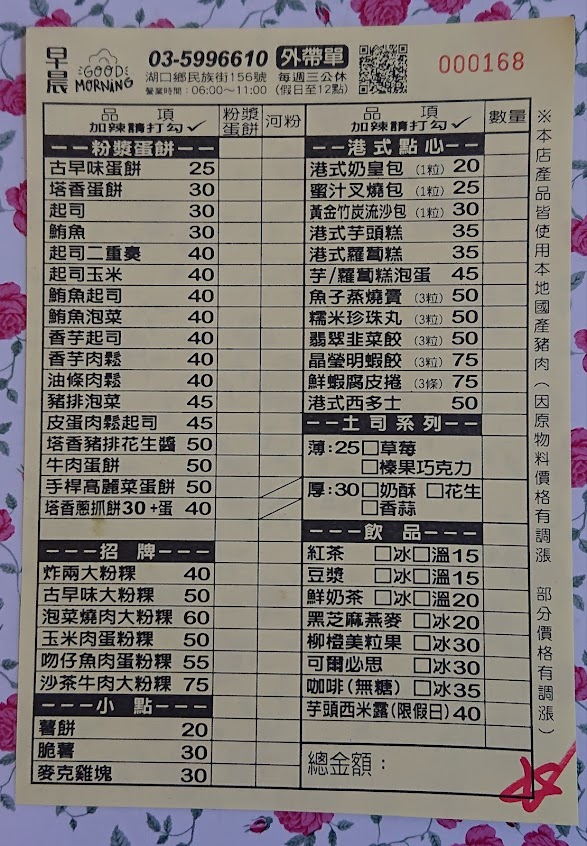 早晨
GOOD
MORNING
03-5996610 外帶單
湖口鄉民族街156號 每週三公休
營業時間：06:00～11:00 (假日至12點)
000168
品 項
加辣請打勾✓
粉漿蛋餅
河粉
---粉漿蛋餅---
古早味蛋餅 25
塔香蛋餅 30
起司 30
鮪魚 30
起司二重奏 40
起司玉米 40
鮪魚起司 40
鮪魚泡菜 40
香芋起司 40
香芋肉鬆 40
油條肉鬆 40
豬排泡菜 45
皮蛋肉鬆起司 45
塔香豬排花生醬 50
牛肉蛋餅 50
手桿高麗菜蛋餅 50
塔香蔥抓餅30+蛋 40
---招 牌---
炸兩大粉粿 40
古早味大粉粿 50
泡菜燒肉大粉粿 60
玉米肉蛋粉粿 50
吻仔魚肉蛋粉粿 55
沙茶牛肉大粉粿 75
---小 點---
薯餅 20
脆薯 30
麥克雞塊 30
品 項
加辣請打勾✓
數量
---港式點心---
港式奶皇包 (1粒) 20
蜜汁叉燒包 (1粒) 25
黃金竹炭流沙包 (1粒) 30
港式芋頭糕 35
港式蘿蔔糕 35
芋/蘿蔔糕泡蛋 45
魚子蒸燒賣 (3粒) 50
糯米珍珠丸 (3粒) 50
翡翠韭菜餃 (3粒) 50
晶瑩明蝦餃 (3粒) 75
鮮蝦腐皮捲 (3條) 75
港式西多士 50
---土司系列---
薄:25□草莓
□榛果巧克力
厚:30□奶酥 □花生
□香蒜
---飲 品---
紅茶 □冰□溫15
豆漿 □冰□溫15
鮮奶茶 □冰□溫20
黑芝麻燕麥 □冰20
柳橙美粒果 □冰30
可爾必思 □冰30
咖啡(無糖) □冰35
芋頭西米露(限假日)40
總金額：
※本店產品皆使用本地國產豬肉(因原物料價格有調漲 部分價格有調漲)